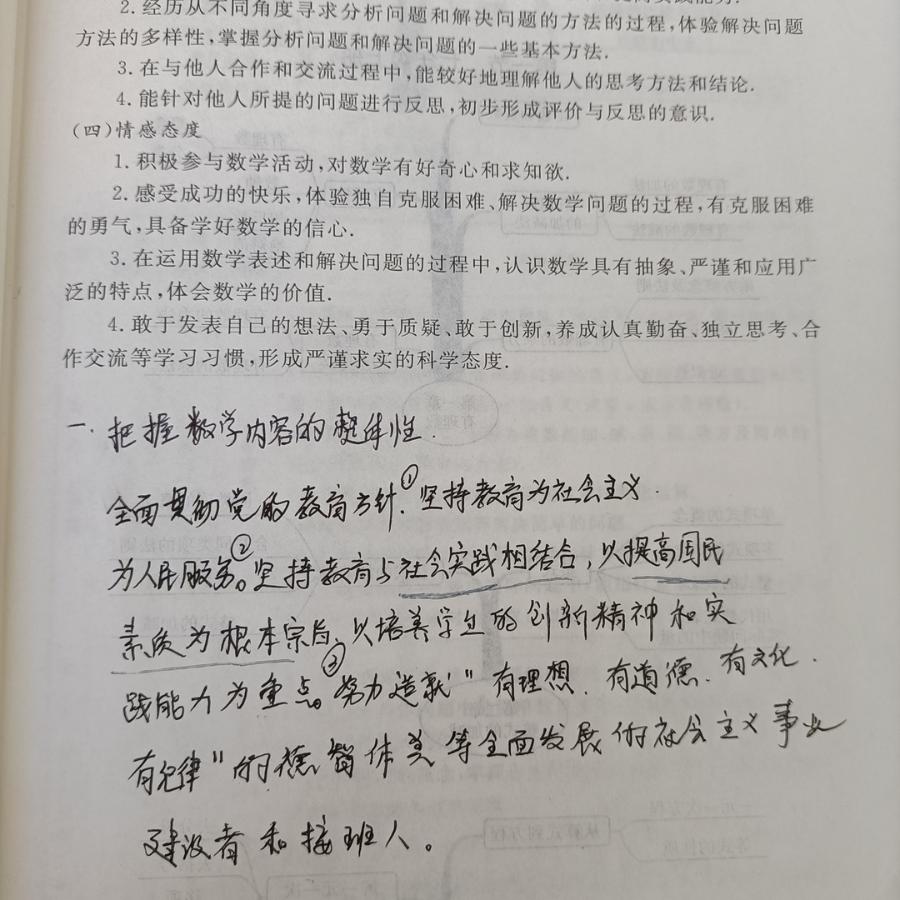 2. 经历从不同角度寻求分析问题和解决问题的方法的过程,体验解决问题
方法的多样性,掌握分析问题和解决问题的一些基本方法.
3. 在与他人合作和交流过程中,能较好地理解他人的思考方法和结论.
4. 能针对他人所提的问题进行反思,初步形成评价与反思的意识.
(四)情感态度
1. 积极参与数学活动,对数学有好奇心和求知欲.
2. 感受成功的快乐,体验独自克服困难、解决数学问题的过程,有克服困难
的勇气,具备学好数学的信心.
3. 在运用数学表述和解决问题的过程中,认识数学具有抽象、严谨和应用广
泛的特点,体会数学的价值.
4. 敢于发表自己的想法、勇于质疑、敢于创新,养成认真勤奋、独立思考、合
作交流等学习习惯,形成严谨求实的科学态度.
一. 把握数学内容的整体性.
全面贯彻党的教育方针.①坚持教育为社会主义.
为人民服务。②坚持教育与社会实践相结合,以提高国民
素质为根本宗旨,以培养学生的创新精神和实
践能力为重点。③努力造就"有理想.有道德.有文化.
有纪律"的德智体美等全面发展的社会主义事业
建设者和接班人。